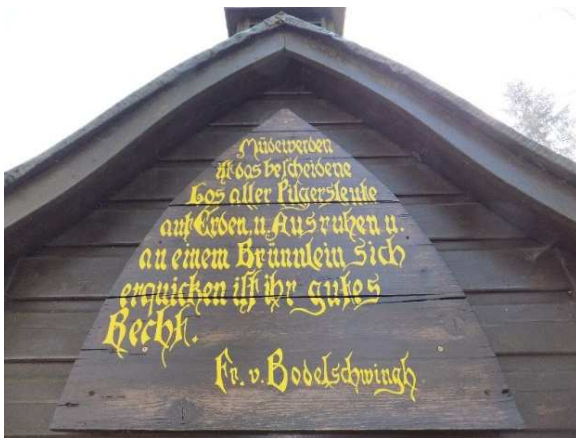 Müdewerden
ist das bescheidene
Los aller Pilgersleute
auf Erden. u. Ausruhen u.
an einem Brünnlein sich
erquicken ist ihr gutes
Recht.
Fr. v. Bodelschwingh